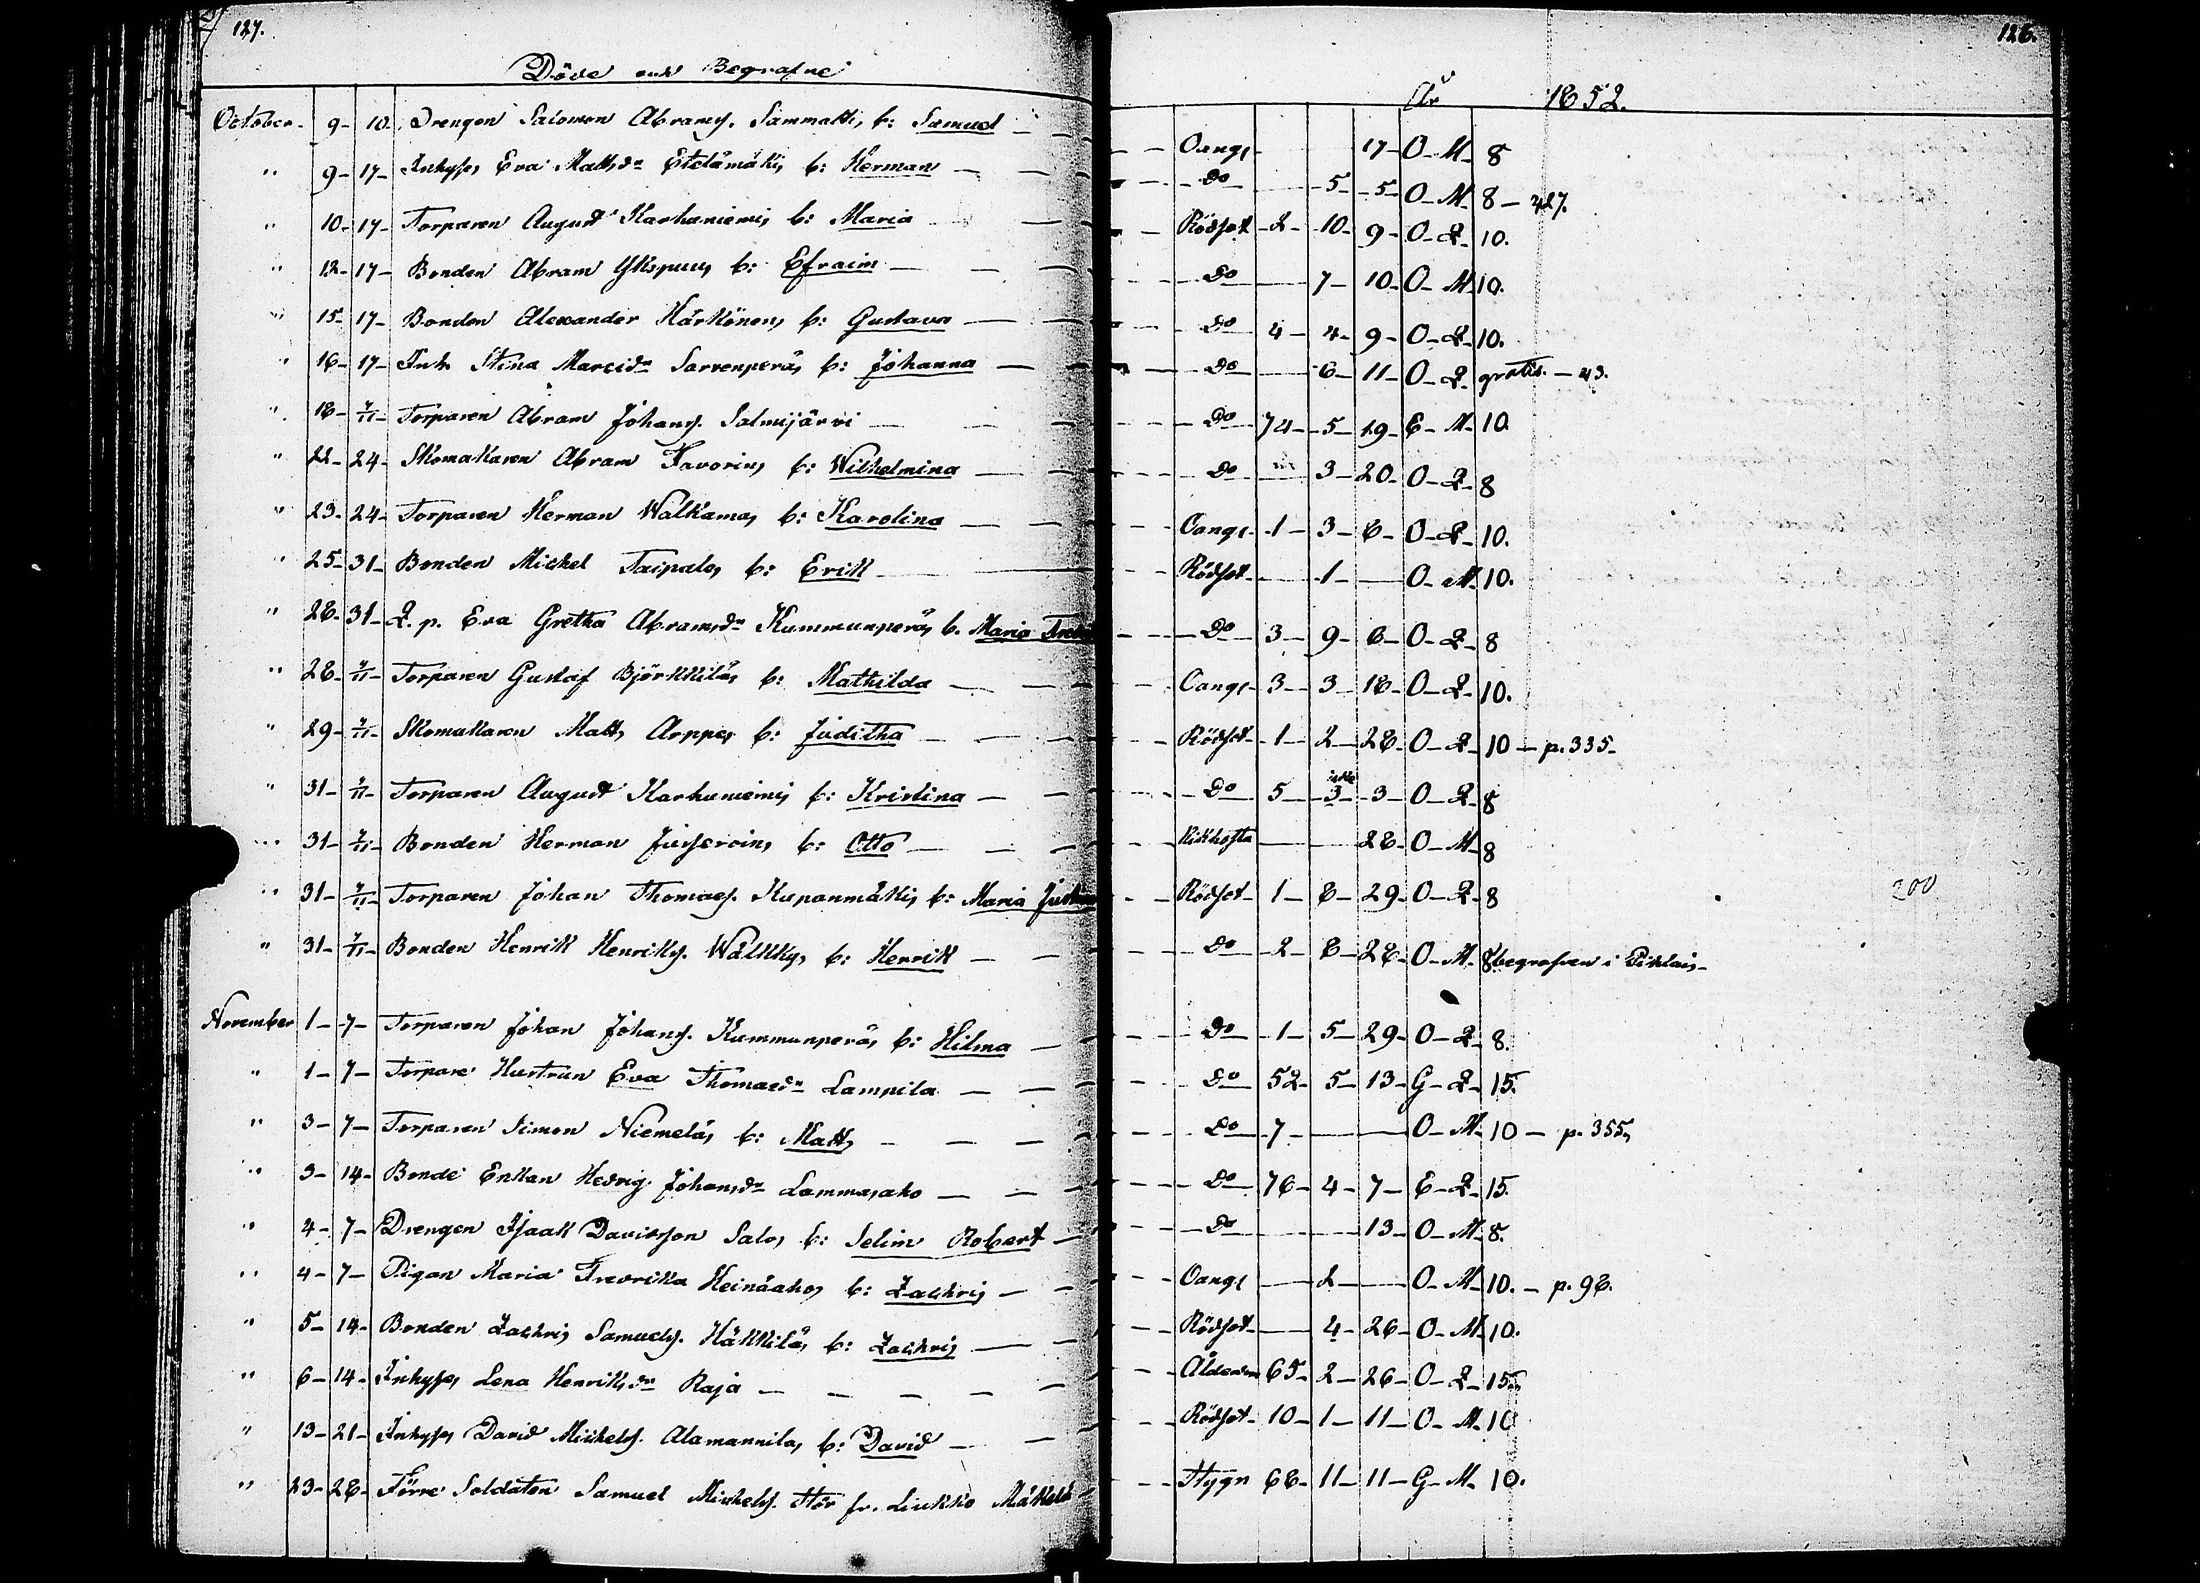 127.
Döde och Begrafne
October. 9- 10. Drengen Salomon Abramss. Sammatti, b: Samuel
" 9- 17- Inhyses Eva Mattsdr Etelämäki, b: Herman
" 10- 17- Torparen August Karhuniemi, b: Maria
" 12- 17- Bonden Abram Ykspuu, b: Efraim
" 15- 17- Bonden Alexander Härkönen, b: Gustava
" 16- 17- Inh. Stina Marcidr Sarvenperä, b: Johanna
" 18- 7/11- Torparen Abram Johanss. Salmijärvi
" 22- 24- Skomakaren Abram Favorin, b: Wilhelmina
" 23- 24- Torparen Herman Walkama, b: Karolina
" 25- 31- Bonden Michel Taipale, b: Erik
" 28- 31- Q. p. Eva Gretha Abramsdr Kummunperä, b. Maria
" 28- 7/11- Torparen Gustaf Björkkilä, b: Mathilda
" 29- 7/11- Skomakaren Matts Arppe, b: Juditha
" 31- 7/11- Torparen August Karhuniemi, b: Kristina
" 31- 7/11- Bonden Herman Jusservin, b: Otto
" 31- 7/11- Torparen Johan Thomass. Kupanmäki, b: Maria
" 31- 7/11- Bonden Henrik Henrikss. Wälkky, b: Henrik
November 1- 7- Torparen Johan Johanss. Kummunperä, b: Hilma
" 1- 7- Torpare Hustrun Eva Thomasdr Lampila
" 3- 7- Torparen Simon Niemelä, b: Matts
" 3- 14- Bonde Enkan Hedvig Johansdr Lammasaho
" 4- 7- Drengen Isaak Davidsson Salo, b: Selim Robert
" 4- 7- Pigan Maria Fredrika Heinäaho, b: Zachris
" 5- 14- Bonden Zachris Samuelss. Häkkilä, b: Zachris
" 6- 14- Inhyses Lena Henriksdr Raja
" 13- 21- Inhyses David Michelss. Alamannila, b: David
" 23- 28- Förre Soldaten Samuel Michelss. Stör fr. Liukko Mäkelä
128.
År 1852.
Oangf 17- O- M- 8
Do 5- 5- O- M- 8 - 427.
Rödsot 2- 10- 9- O- Q- 10.
Do 7- 10- O- M- 10.
Do 4- 4- 9- O- Q- 10.
Do 6- 11- O- Q- gratis. - 43.
Do 74- 5- 19- E- M- 10.
Do 3- 20- O- Q- 8
Oangf 1- 3- 8- O- Q- 10.
Rödsot 1- O- M- 10.
Do 3- 9- 6- O- Q- 8
Oangf 3- 3- 18- O- Q- 10.
Rödsot 1- 2- 28- O- Q- 10 - p. 335.
Do 5- 3- 3- O- Q- 8
Kikhosta 28- O- M- 8
Rödsot 1- 8- 29- O- Q- 8
200
Do 2- 8- 28- O- M- 8 begrafven i Pihlais
Do 1- 5- 29- O- Q- 8.
Do 52- 5- 13- G- Q- 15.
Do 7- O- M- 10 - p. 355,
Do 76- 4- 7- E- Q- 15.
Do 13- O- M- 8.
Oangf 2- O- M- 10. - p. 98.
Rödsot 4- 26- O- M- 10.
Ålderdm 65- 2- 26- O- Q- 15
Rödsot 10- 1- 11- O- M- 10
Stygn 68- 11- 11- G- M- 10.